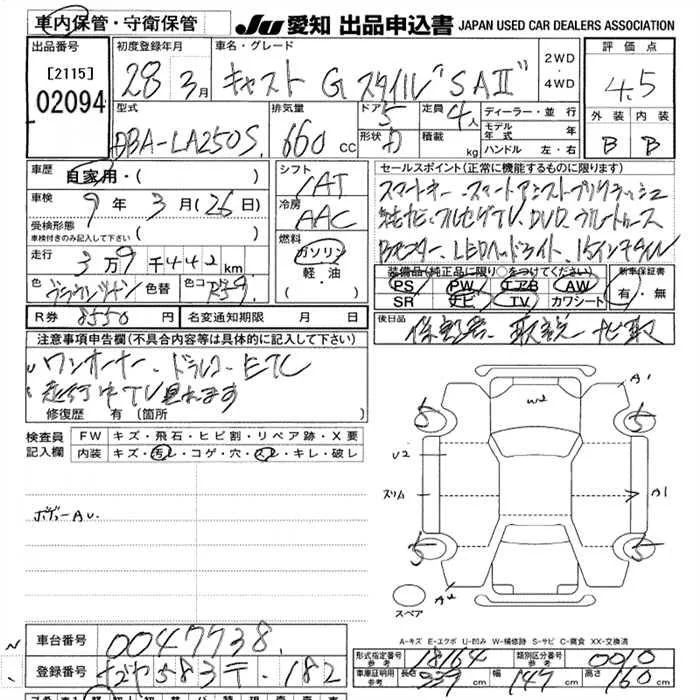 車内保管・守衛保管
JU 愛知 出品申込書 JAPAN USED CAR DEALERS ASSOCIATION
出品番号
[2115]
02094
初度登録年月
28 3月
車名・グレード
キャスト G スタイル "SAⅡ"
2WD
・
4WD
評価点
4.5
外装 内装
B B
型式
DBA-LA250S
排気量
660cc
ドア 5
形状
定員 4人
積載 kg
ディーラー・並行
モデル年式 年
ハンドル 左・右
車歴
自家用・( )
車検
9年 3月(26日)
受検形態
車検付きのみ記入して下さい ( )
走行
3万9千442km
色 色替 色コ
シフト
IAT
冷房
AAC
燃料
ガソリン
・
軽・油
セールスポイント(正常に機能するものに限ります)
スマートキー スマートアシスト プリクラッシュ
純ナビ フルセグTV DVD ブルートゥース
LEDヘッドライト 15インチアルミ
装備品(純正品に限り○をつけてください)
PS PW エアB AW
SR ナビ TV カワシート
新車保証書
有・無
R券 8550円 名変通知期限 月 日
後日品
保証書 取説 ナビ取
注意事項申告欄(不具合内容等は具体的に記入して下さい)
ワンオーナー、ドラレコ ETC
走行中TV見れます
修復歴 有(箇所 )
検査員
記入欄
FW キズ・飛石・ヒビ割・リペア跡・X要
内装 キズ・汚レ・コゲ・穴・スレ・キレ・破レ
ボデーAU.
A1
W2
5 5
U2
スリム
5 5
スペア
A-キズ E-エクボ U-凹み W-補修跡 S-サビ C-腐食 XX-交換済
車台番号 0047738
登録番号 583 182
形式指定番号 参考 18164
類別区分番号 参考 0010
車庫証明用 参考 長さ 339cm 幅 147cm 高さ 160cm